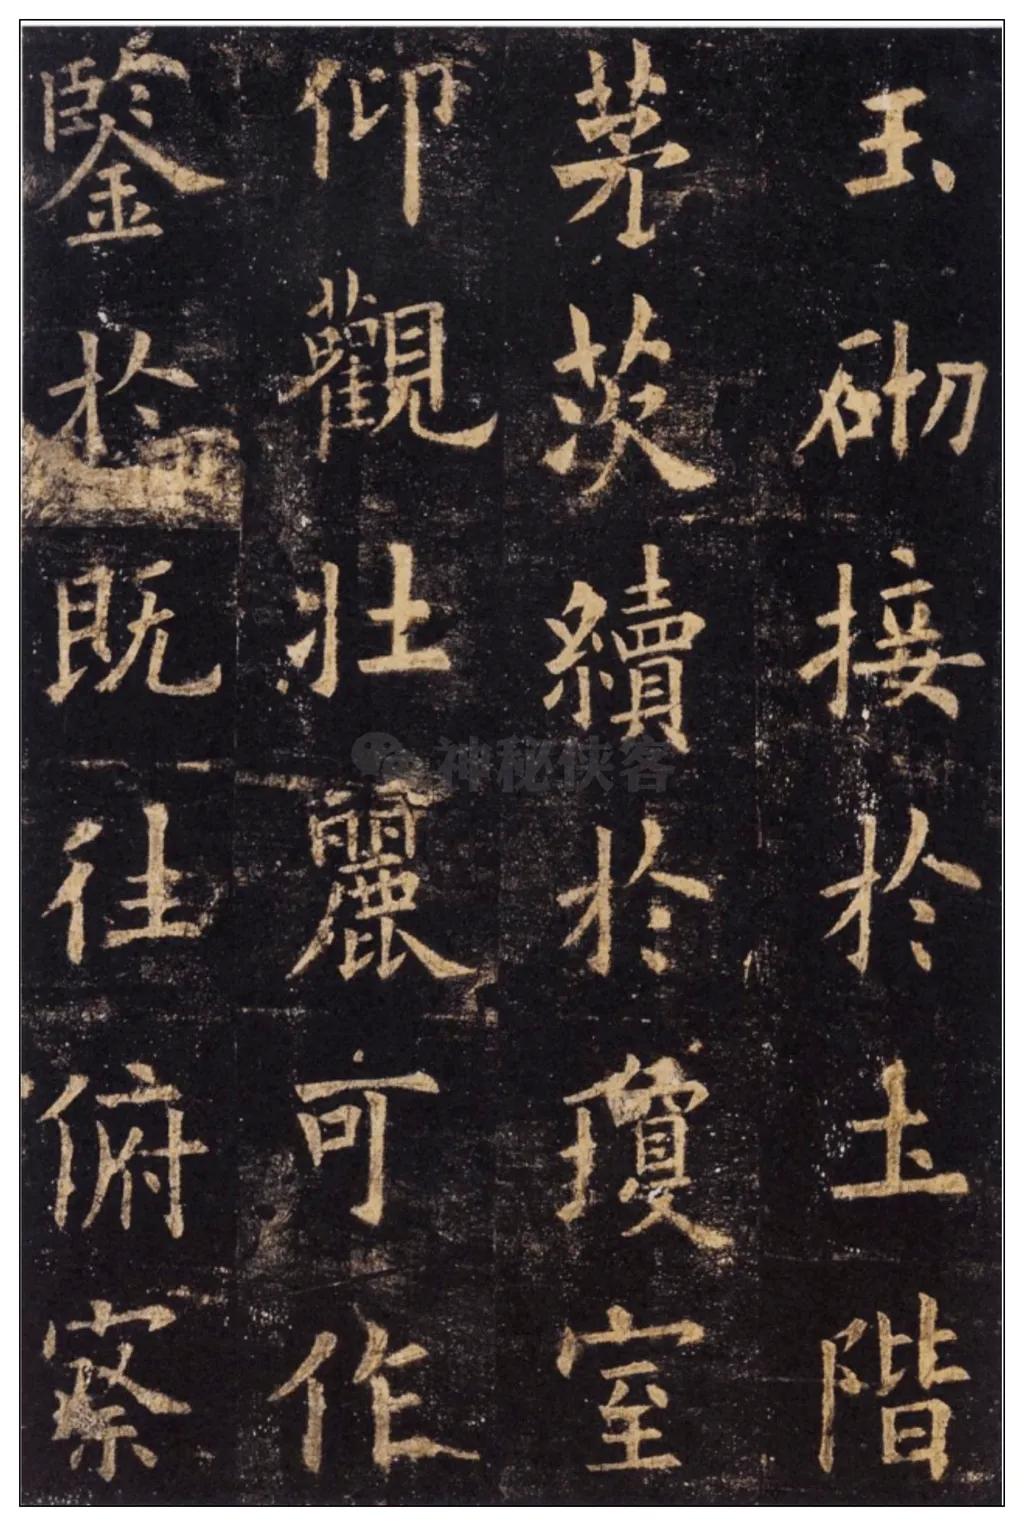 玉砌接於土階
茅茨續於瓊室
仰觀壯麗可作
鑒於既往俯察
神秘侠客